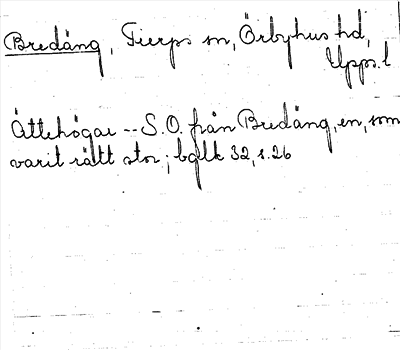 Bredäng, Tierps sn, Örbyhus hd,
Upps. l
Ättehögar -- S.O. från Bredäng, en, som
varit rätt stor; bqlk 32, s. 26